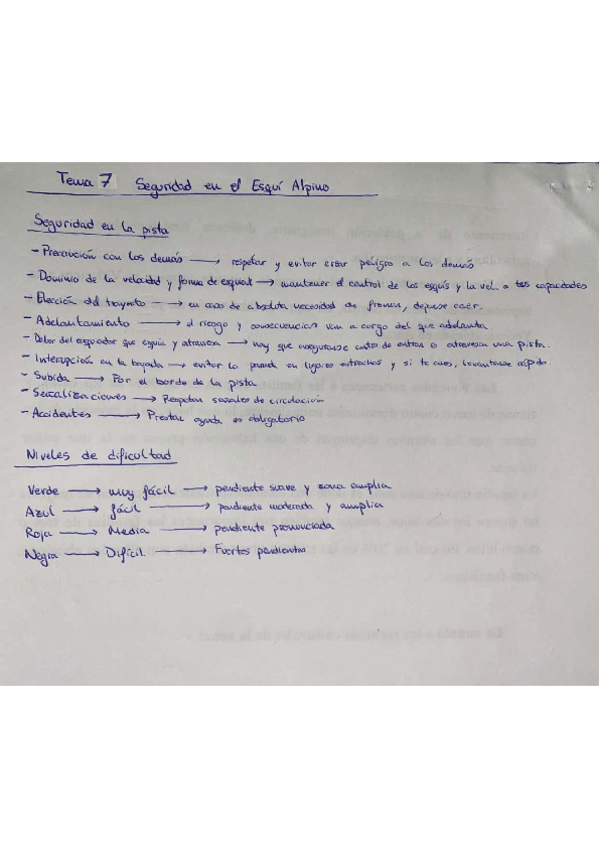 Tema 7 Seguridad en el Esquí Alpino
Seguridad en la pista
- Precaución con los demás → respetar y evitar crear peligros a los demás
- Dominio de la velocidad y forma de esquiar → mantener el control de los esquís y la vel. a tus capacidades
- Elección del trayecto → en caso de absoluta necesidad de frenar, dejarse caer.
- Adelantamiento → el riesgo y consecuencias van a cargo del que adelanta.
- Deber del esquiador que esquía y atraviesa → hay que asegurarse antes de entrar o atravesar una pista.
- Interrupción en la bajada → evitar la parada en lugares estrechos y si te caes, levantarse rápido
- Subida → Por el borde de la pista
- Señalizaciones → Respetar señales de circulación
- Accidentes → Prestar ayuda es obligatorio
Niveles de dificultad
Verde → muy fácil → pendiente suave y zona amplia
Azul → fácil → pendiente moderada y amplia
Roja → Media → pendiente pronunciada
Negra → Difícil → Fuertes pendientes